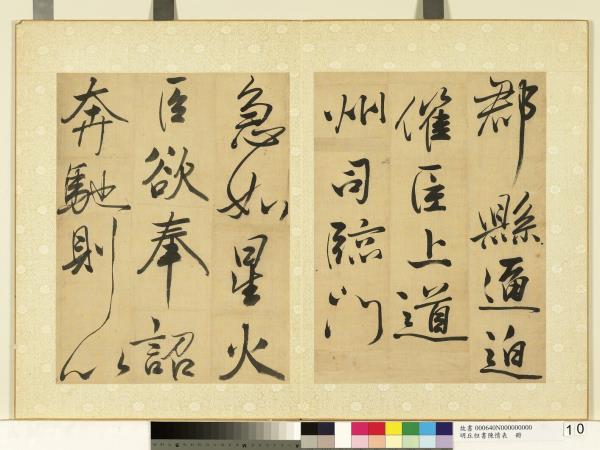 郡縣逼迫
催臣上道
州司臨門
急如星火
臣欲奉詔
奔馳則以
故書 000640N000000000
明丘恒書陳情表 冊
10